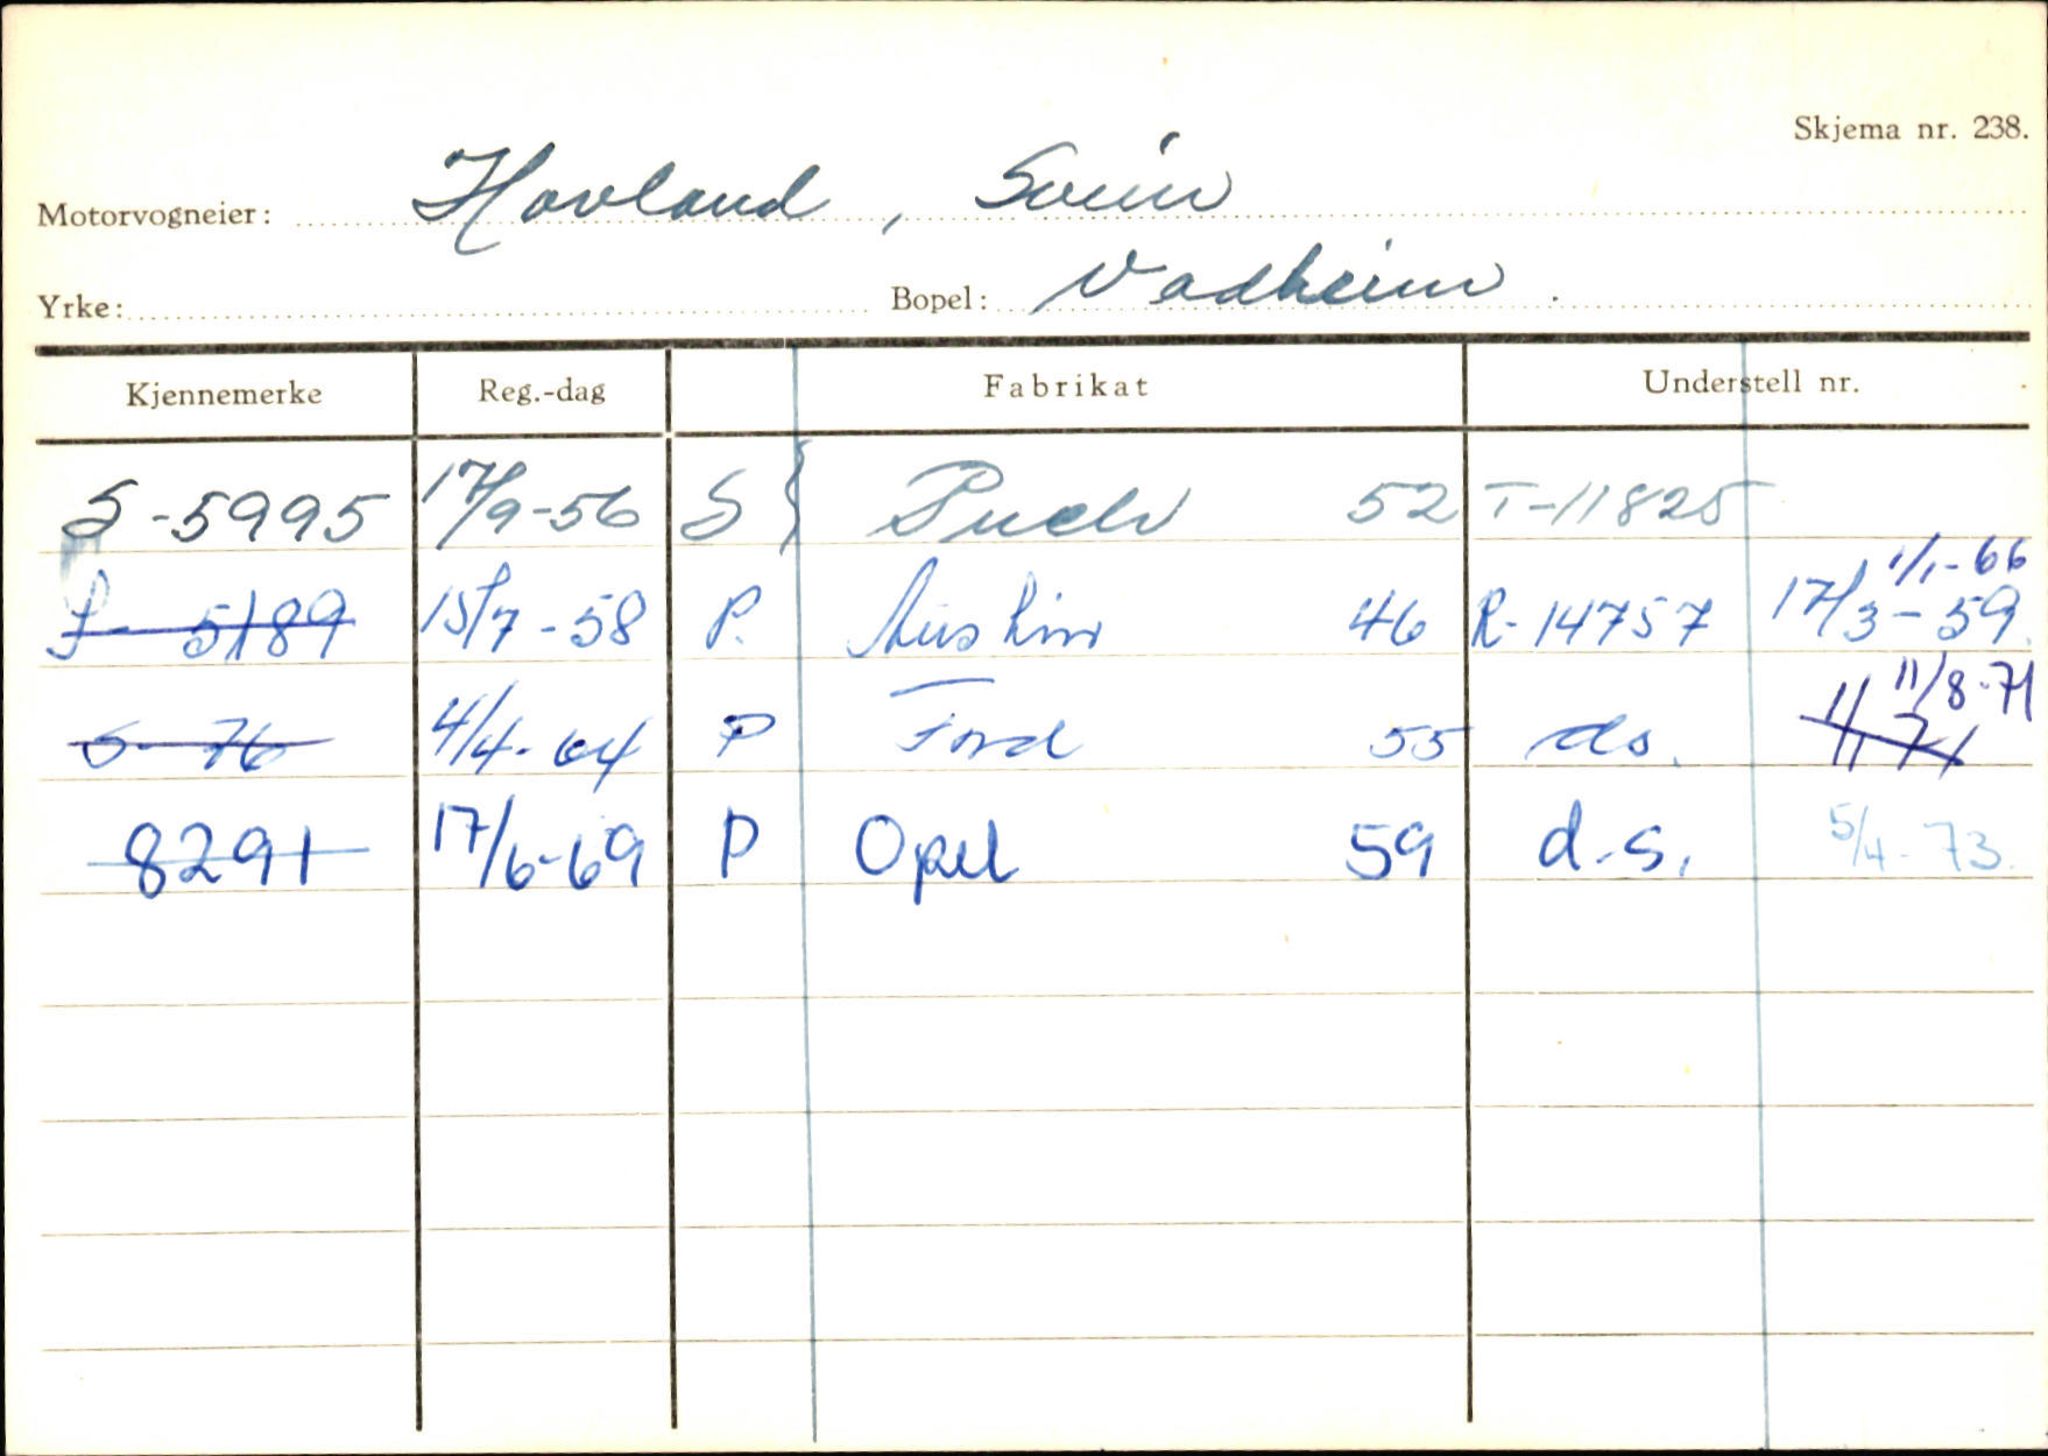 Skjema nr. 238.
Motorvogneier: Hovland, Svein
Yrke: Bopel: Vadheim.
Kjennemerke Reg.-dag Fabrikat Understell nr.
S-5995 17/9-56 S} Puch 52 T-11825
1/1-66
S-5189 15/7-58 P. Austin 46 R-14757 17/3-59.
11/8-71
S-76 4/4-64 P Ford 55 ds. 1/1 71
8291 17/6-69 P Opel 59 d.s. 5/4-73.